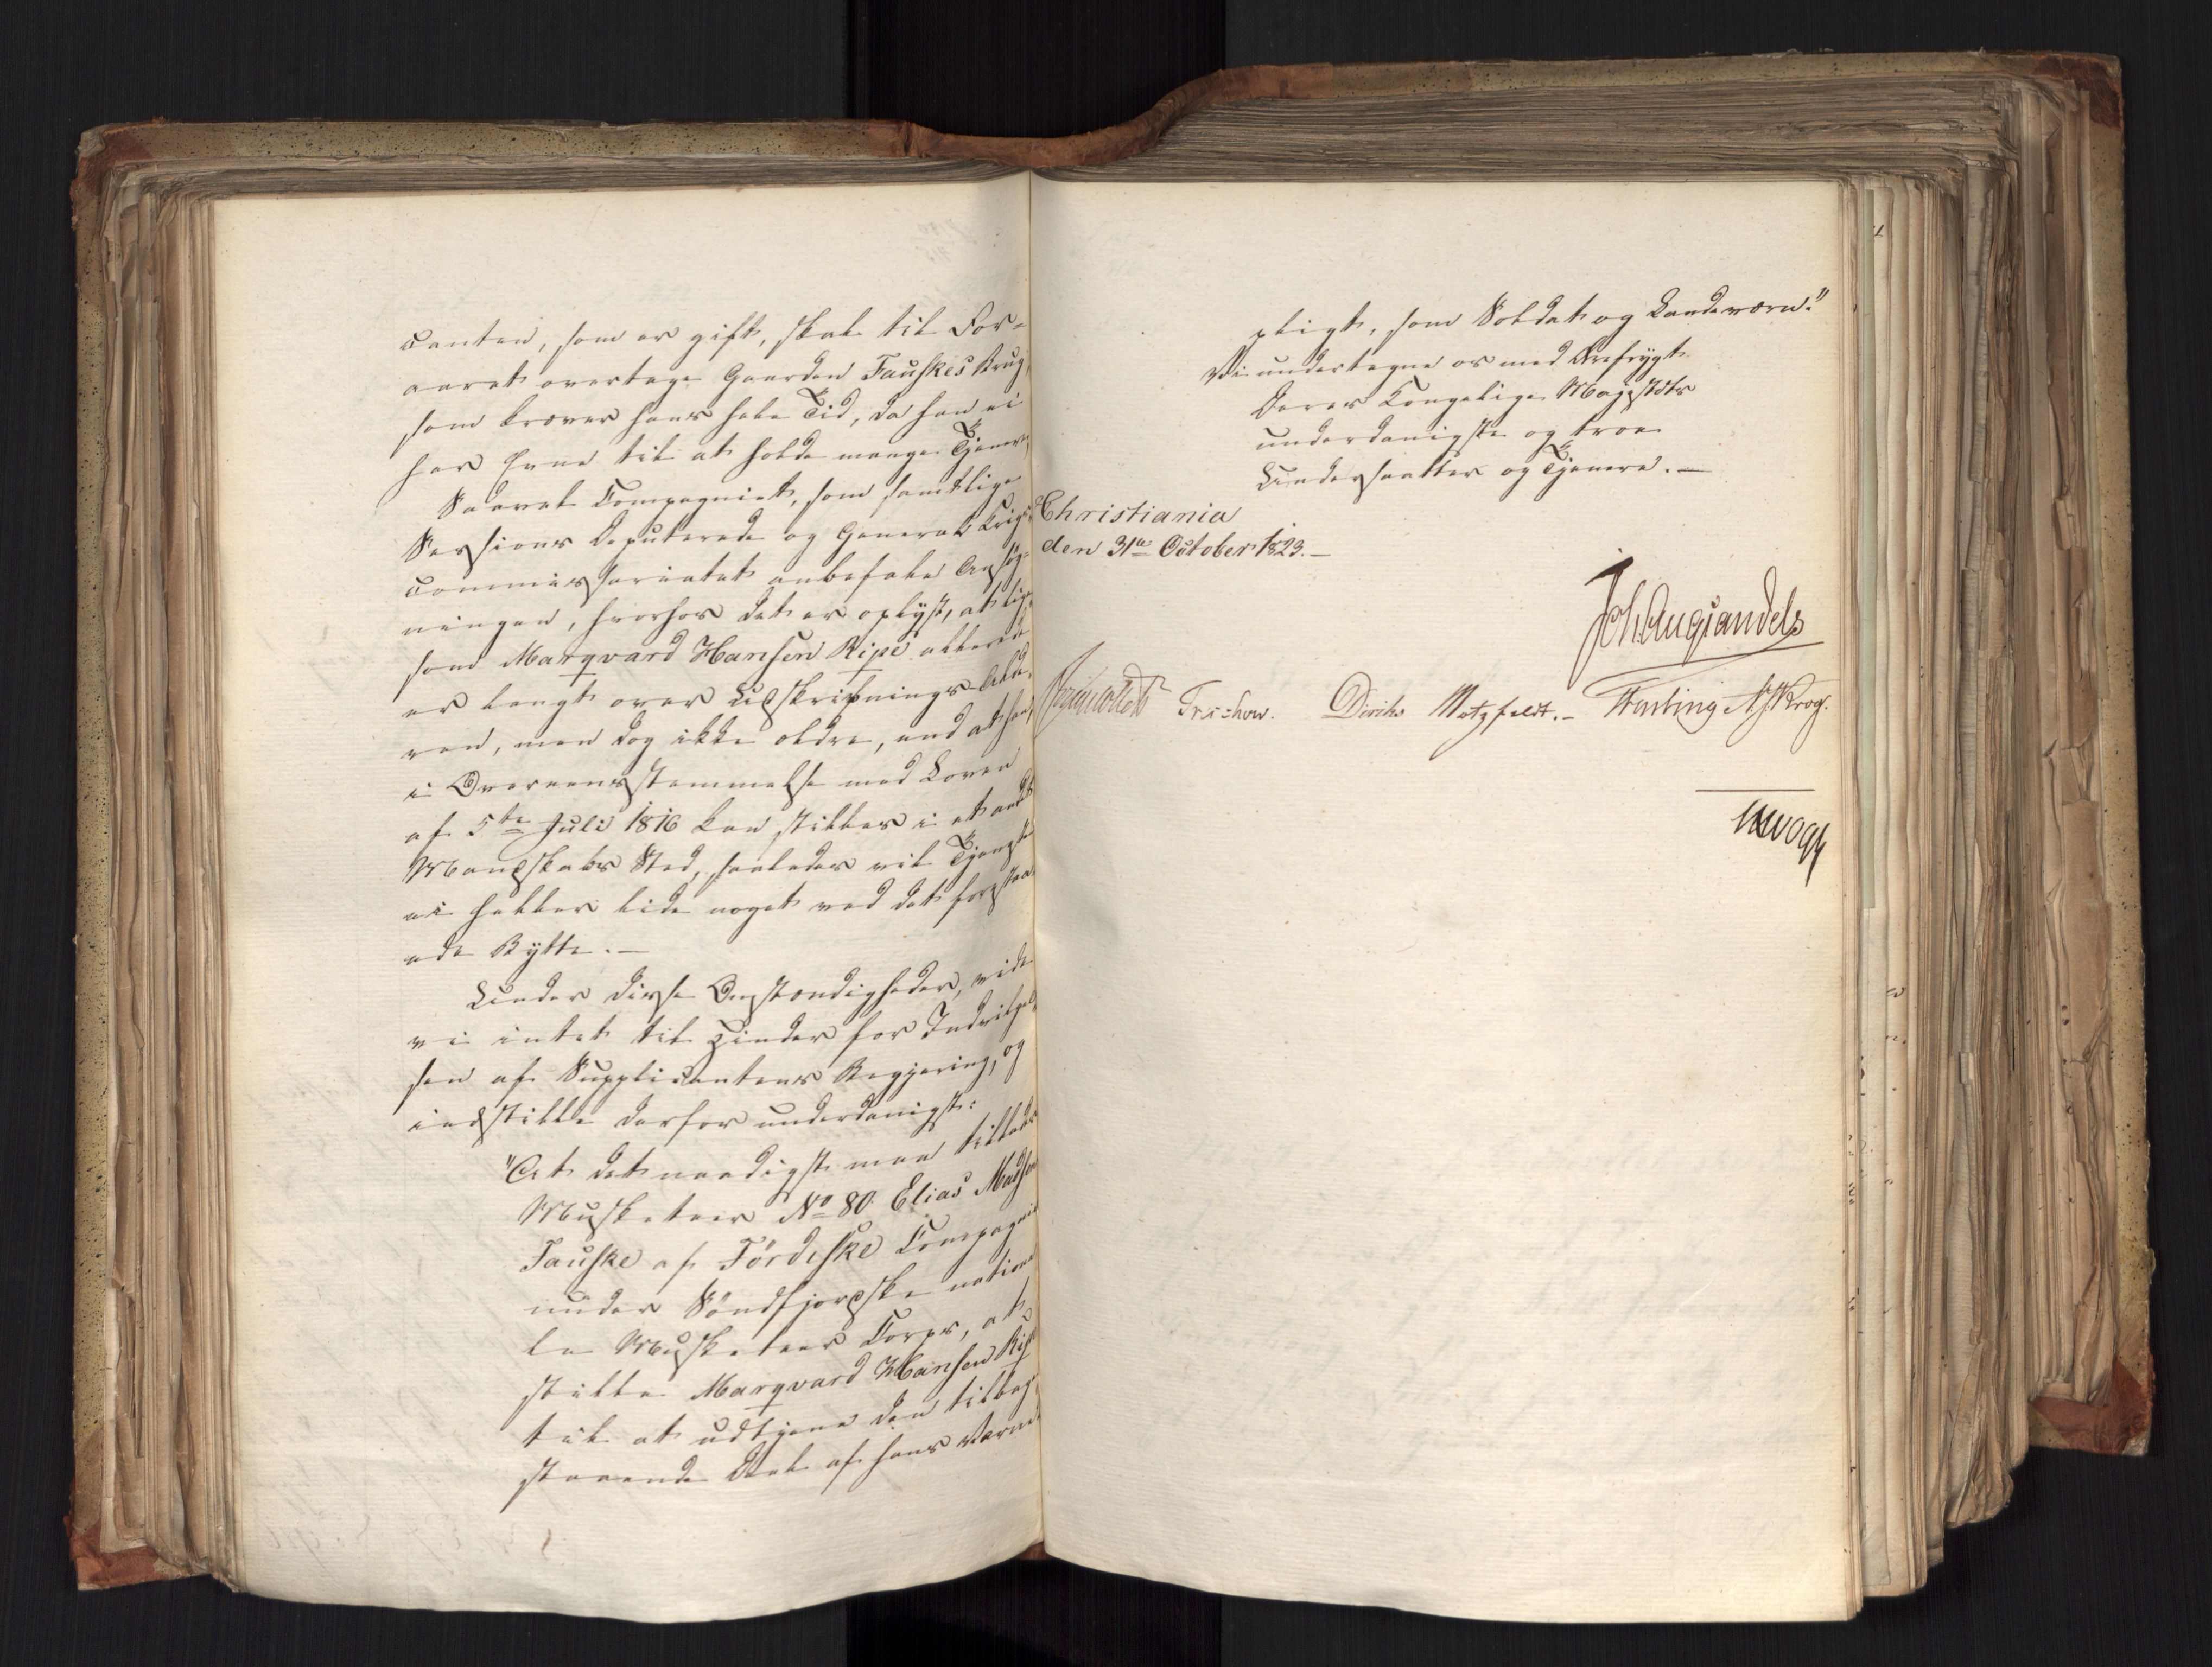 canten, som er gift, skal til For-
aaret overtage Gaarden Fauskes Brug,
som kræver hans hele Tid, da han ei
har Evne til at holde mange Tjenere,
Saavel Compagniet, som samtlige
Sessions Deputerede og General Krigs-
commissariatet anbefale Ansøg-
ningen, hvorhos det er oplyst, at lige-
som Marqvard Hansen Ripe allerede
er langt over Udskrivnings Alde-
ren, men dog ikke ældre, end at han,
i Overeensstemmelse med Loven
af 5te Juli 1816 kan stilles i et andet
Mandskabs Sted, saaledes vil Tjenesten
ei heller lide noget ved det forestaa-
ende Bytte. —
Under disse Omstændigheder, vide
vi intet til Hinder for Indvilgel-
sen af Supplicantens Begjering, og
indstille derfor underdanigst:
"At det naadigst maa tillades
Musketeer No 80 Elias Madsen
Fauske af Førdeske Compagnie
under Søndfjordske nationa-
le Musketeer Corps, at
stille Marqvard Hansen Ripe
til at udtjene den tilbage-
staaende Deel af hans Værne-
pligt, som Soldat og Landeværn."
Vi undertegne os med Ærefrygt
Deres Kongelige Majestæts
underdanigste og troe
Undersaatter og Tjenere. —
Christiania
den 31te October 1823. —
Joh Aug Sandels
Jonas Collett Treschow. Diriks Motzfeldt. — Fasting N J Krog.